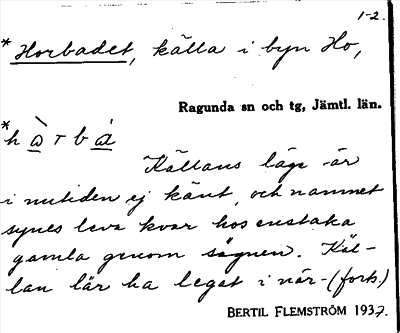 1-2.
*Horbadet, källa i byn Ho,
Ragunda sn och tg, Jämtl. län.
*h à r b á
Källans läge är
i nutiden ej känt, och namnet
synes leva kvar hos enstaka
gamla genom sägnen. Käl-
lan lär ha legat i när- (forts.)
BERTIL FLEMSTRÖM 1937.